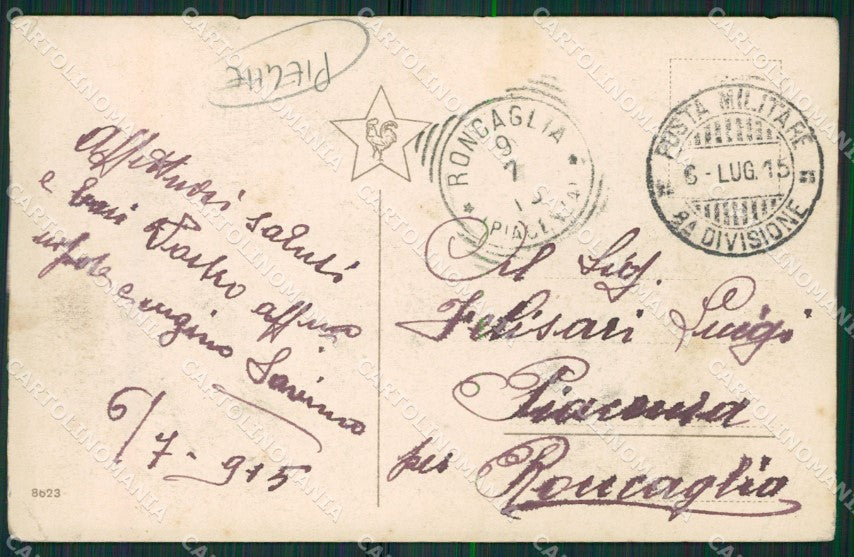 PIEGHE
Affettuosi saluti
e baci Vostro affmo
nipote e cugino Savino
6/7-915
8623
RONCAGLIA
9
7
15
(PIACENZA)
POSTA MILITARE
6 - LUG. 15
8A DIVISIONE
Al Sig.
Felisari Luigi
Piacenza
per Roncaglia
CARTOLINOMANIA